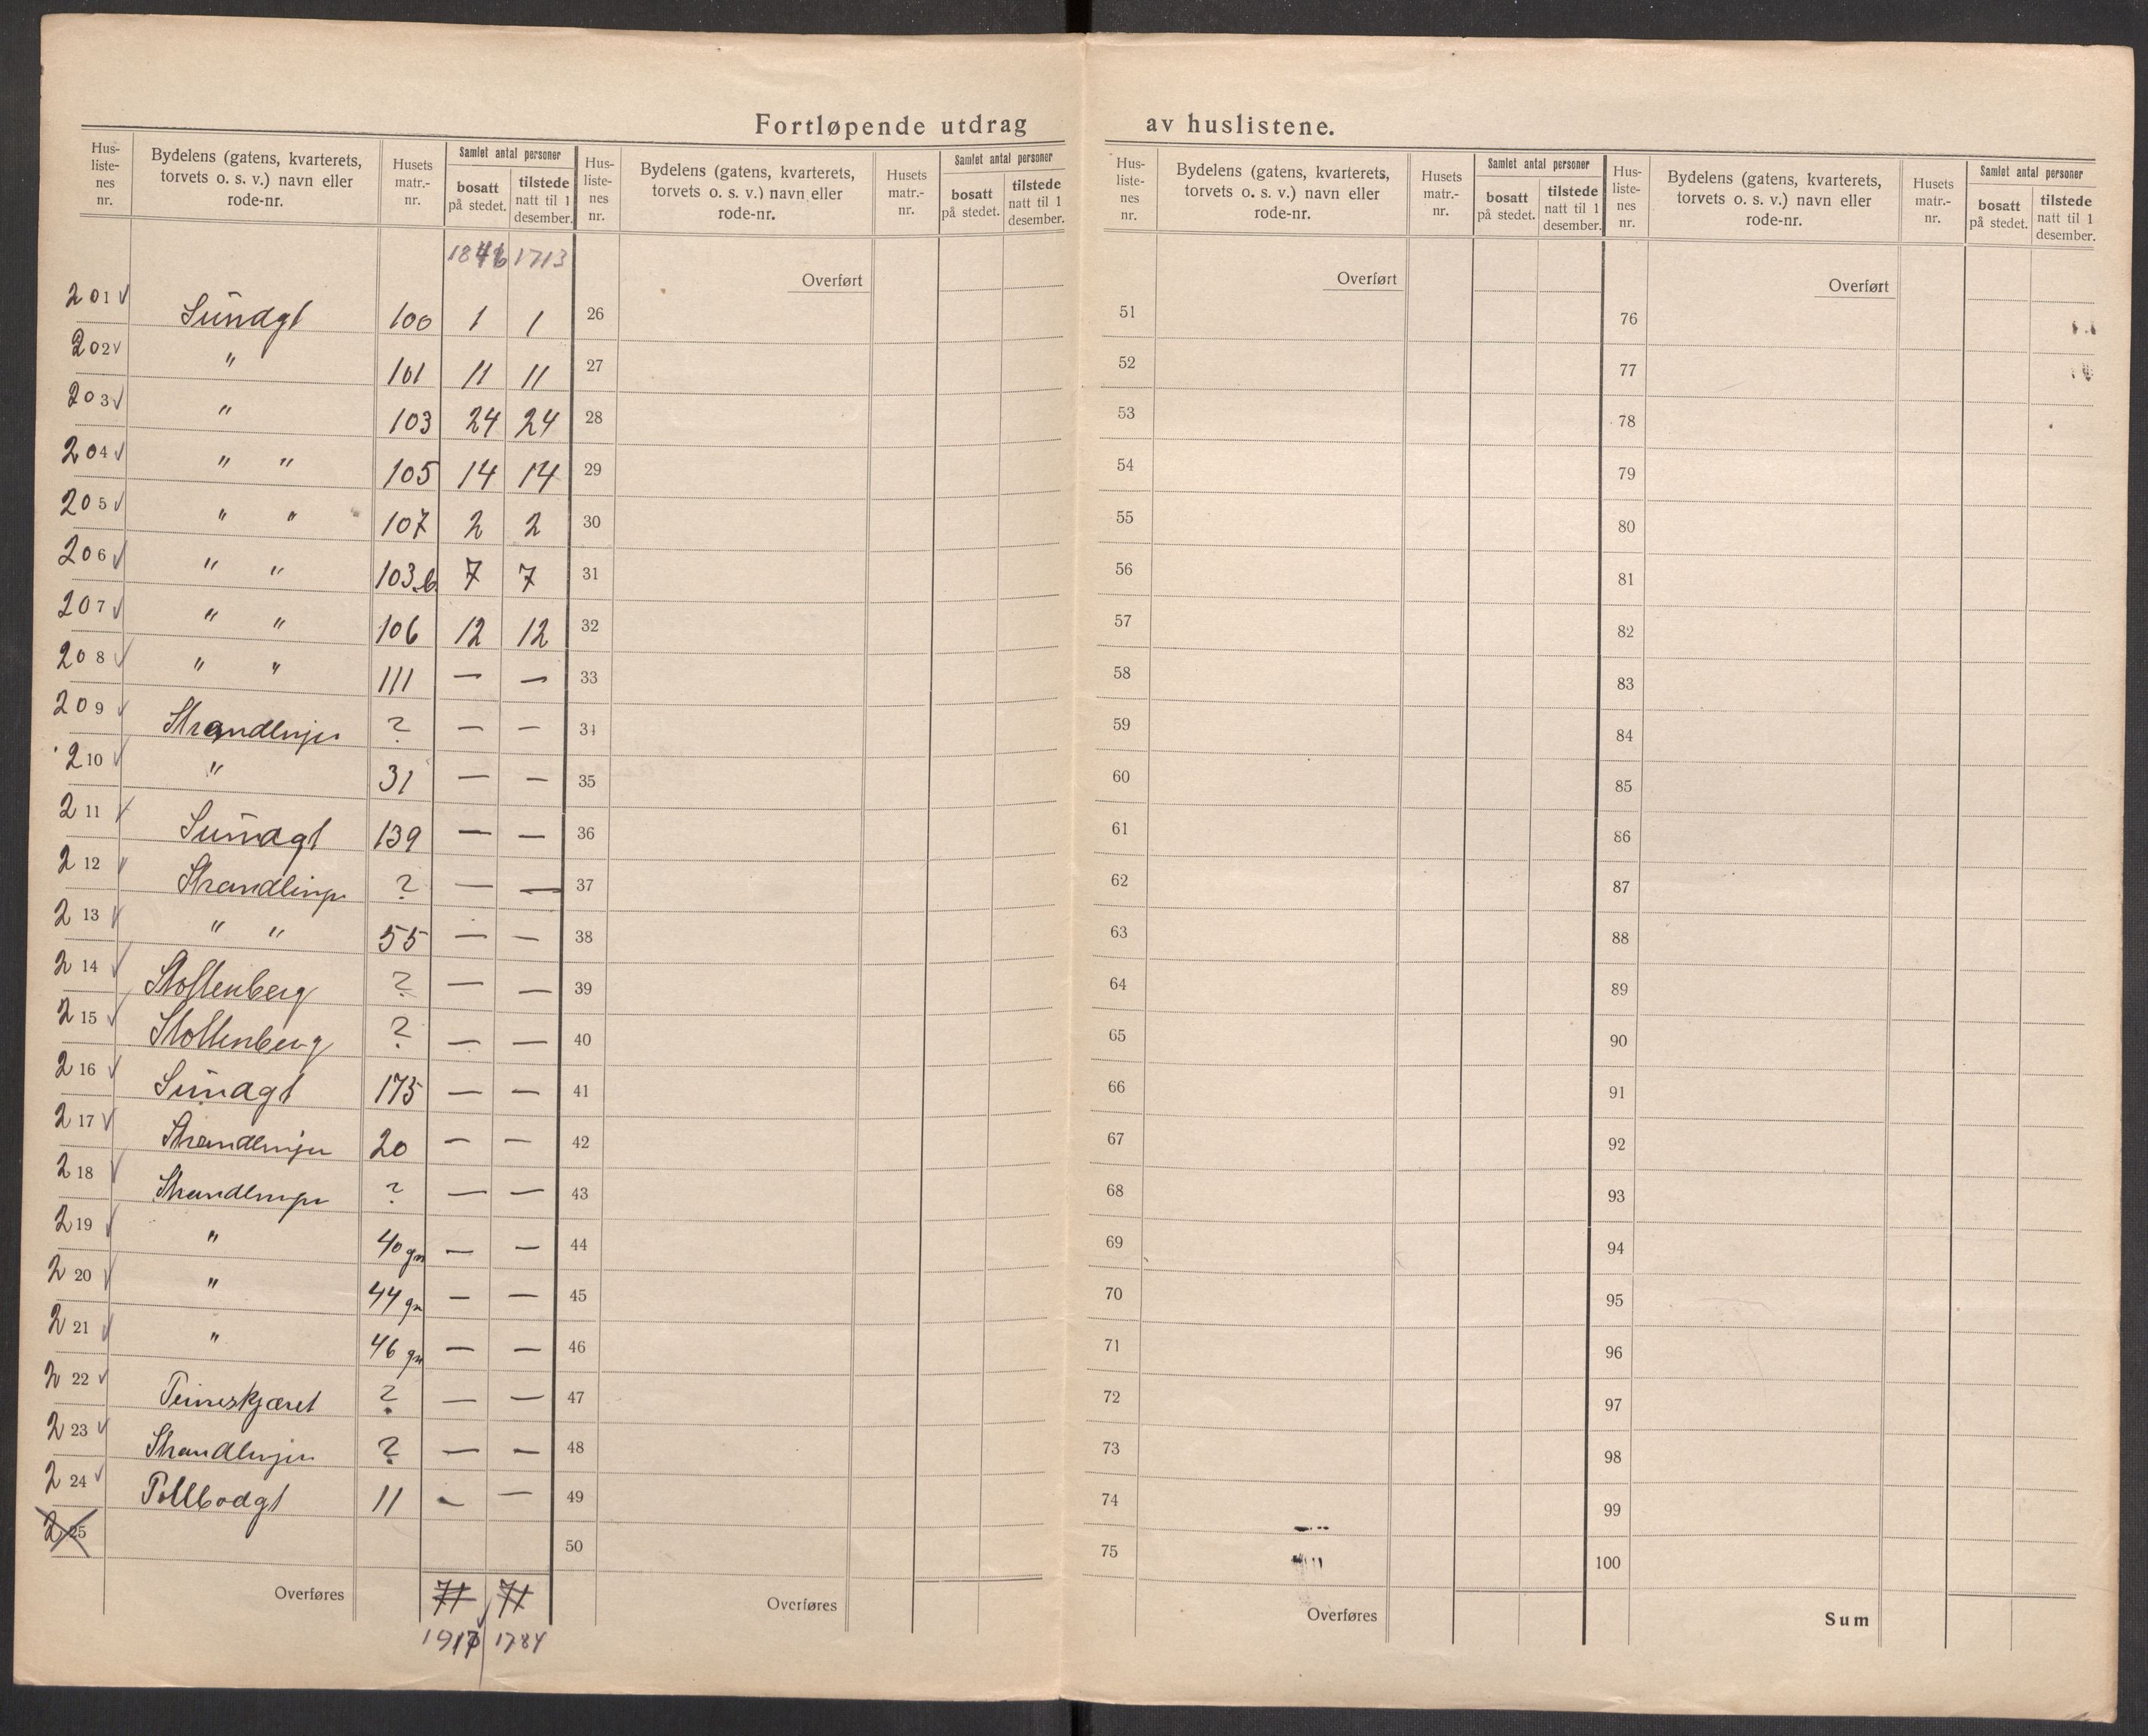 Fortløpende utdrag av huslistene.
Hus-listenes nr. Bydelens (gatens, kvarterets, torvets o. s. v.) navn eller rode-nr. Husets matr.-nr. Samlet antal personer bosatt på stedet. tilstede natt til 1 desember.
Hus-listenes nr. Bydelens (gatens, kvarterets, torvets o. s. v.) navn eller rode-nr. Husets matr.-nr. Samlet antal personer bosatt på stedet. tilstede natt til 1 desember.
Hus-listenes nr. Bydelens (gatens, kvarterets, torvets o. s. v.) navn eller rode-nr. Husets matr.-nr. Samlet antal personer bosatt på stedet. tilstede natt til 1 desember.
Hus-listenes nr. Bydelens (gatens, kvarterets, torvets o. s. v.) navn eller rode-nr. Husets matr.-nr. Samlet antal personer bosatt på stedet. tilstede natt til 1 desember.
1713
Overført Overført Overført
201 Sundgt 100 1 1 26 51 76
202 " 101 11 11 27 52 77
203 " 103 24 24 28 53 78
204 " " 105 14 14 29 54 79
205 " " 107 2 2 30 55 80
206 " " 103b 7 7 31 56 81
207 " " 106 12 12 32 57 82
208 " " 111 — — 33 58 83
209 Strandlinjen ? — — 34 59 84
210 " 31 — — 35 60 85
211 Sundgt 139 — — 36 61 86
212 Strandlinjen ? — — 37 62 87
213 " " 55 — — 38 63 88
214 Stoltenberg ? — — 39 64 89
215 Stoltenberg ? — — 40 65 90
216 Sundgt 175 — — 41 66 91
217 Strandlinjen 20 — — 42 67 92
218 Strandlinjen ? — — 43 68 93
219 " 40 gn — — 44 69 94
220 " 44 gn — — 45 70 95
221 " 46 gn — — 46 71 96
222 Teineskjæret ? — — 47 72 97
223 Strandlinjen ? — — 48 73 98
224 Tollbodgt 11 — — 49 74 99
225 50 75 100
Overføres 71 71 Overføres Overføres Sum
1784